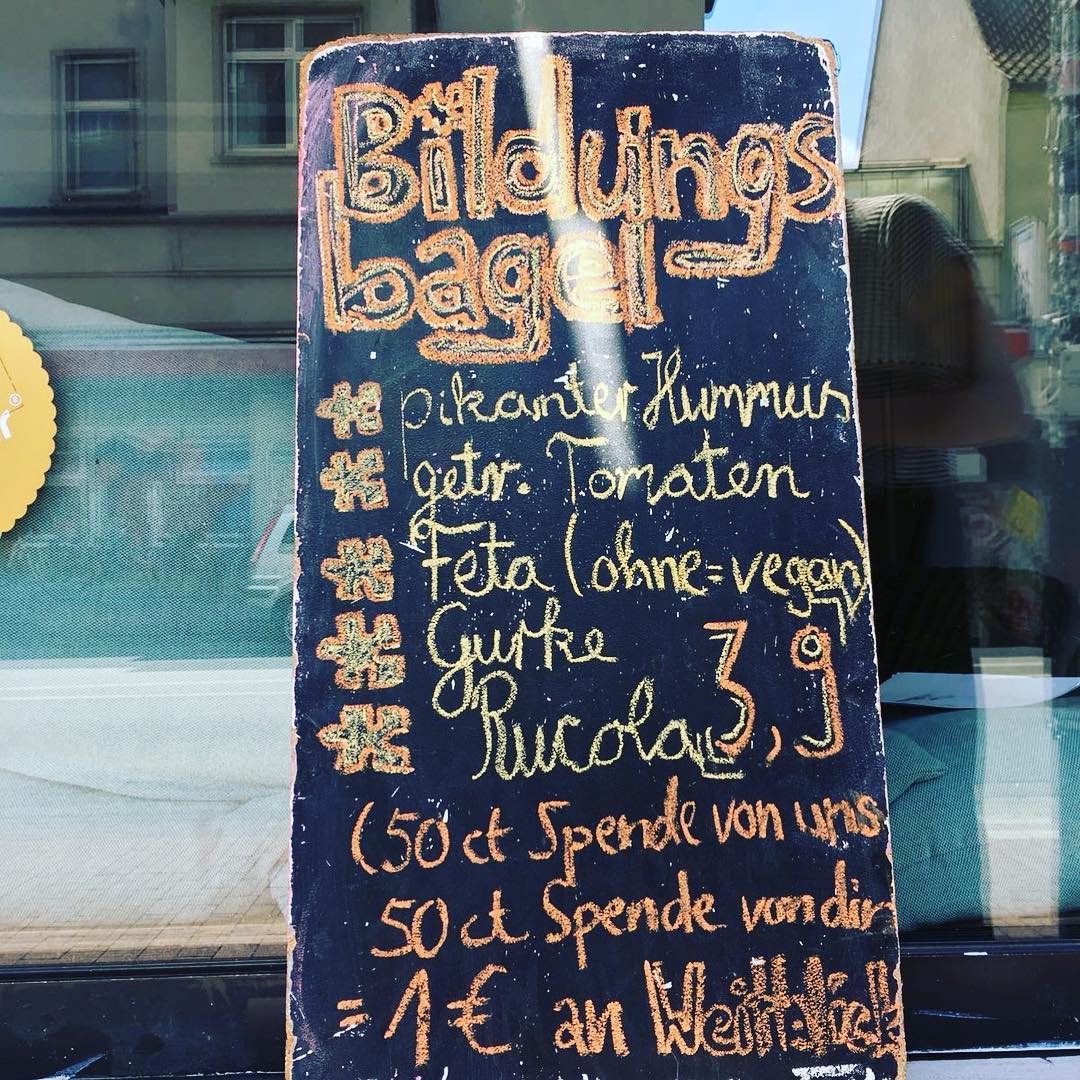 Bildungs
bagel
pikanter Hummus
getr. Tomaten
Feta (ohne=vegan)
Gurke
Rucola 3,9
(50 ct Spende von uns
50 ct Spende von dir
= 1 € an Weitblick